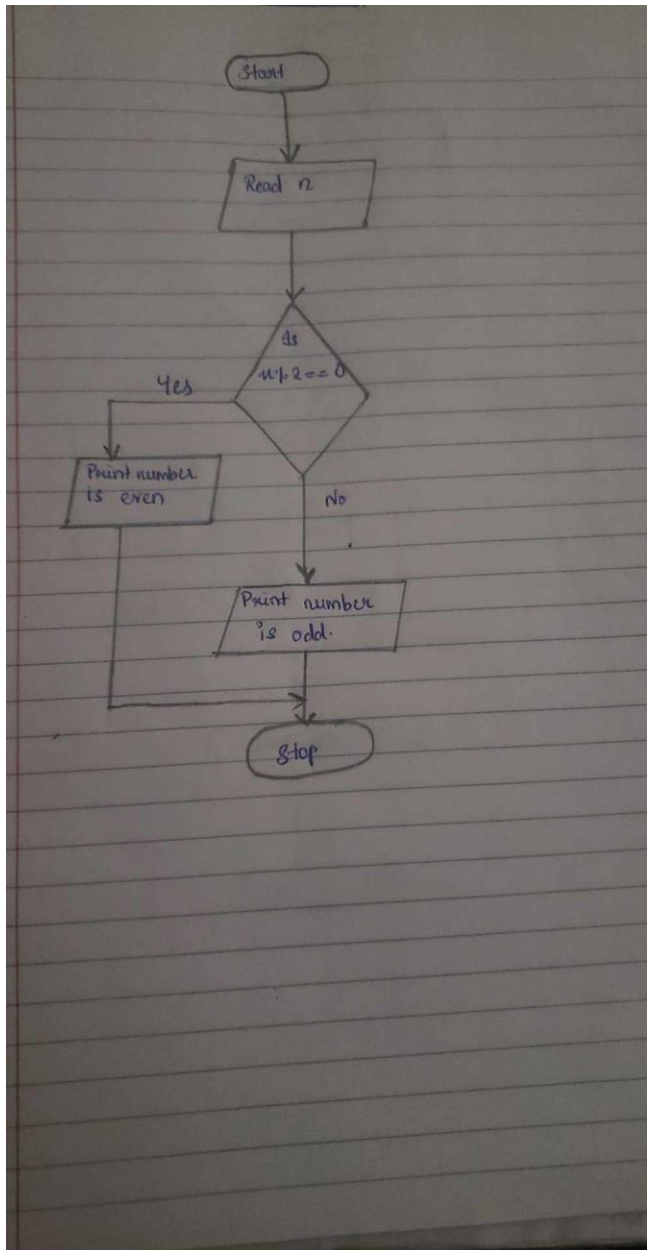 Start
Read n
Is
n%2==0
Yes
Print number
is even
No
Print number
is odd.
Stop